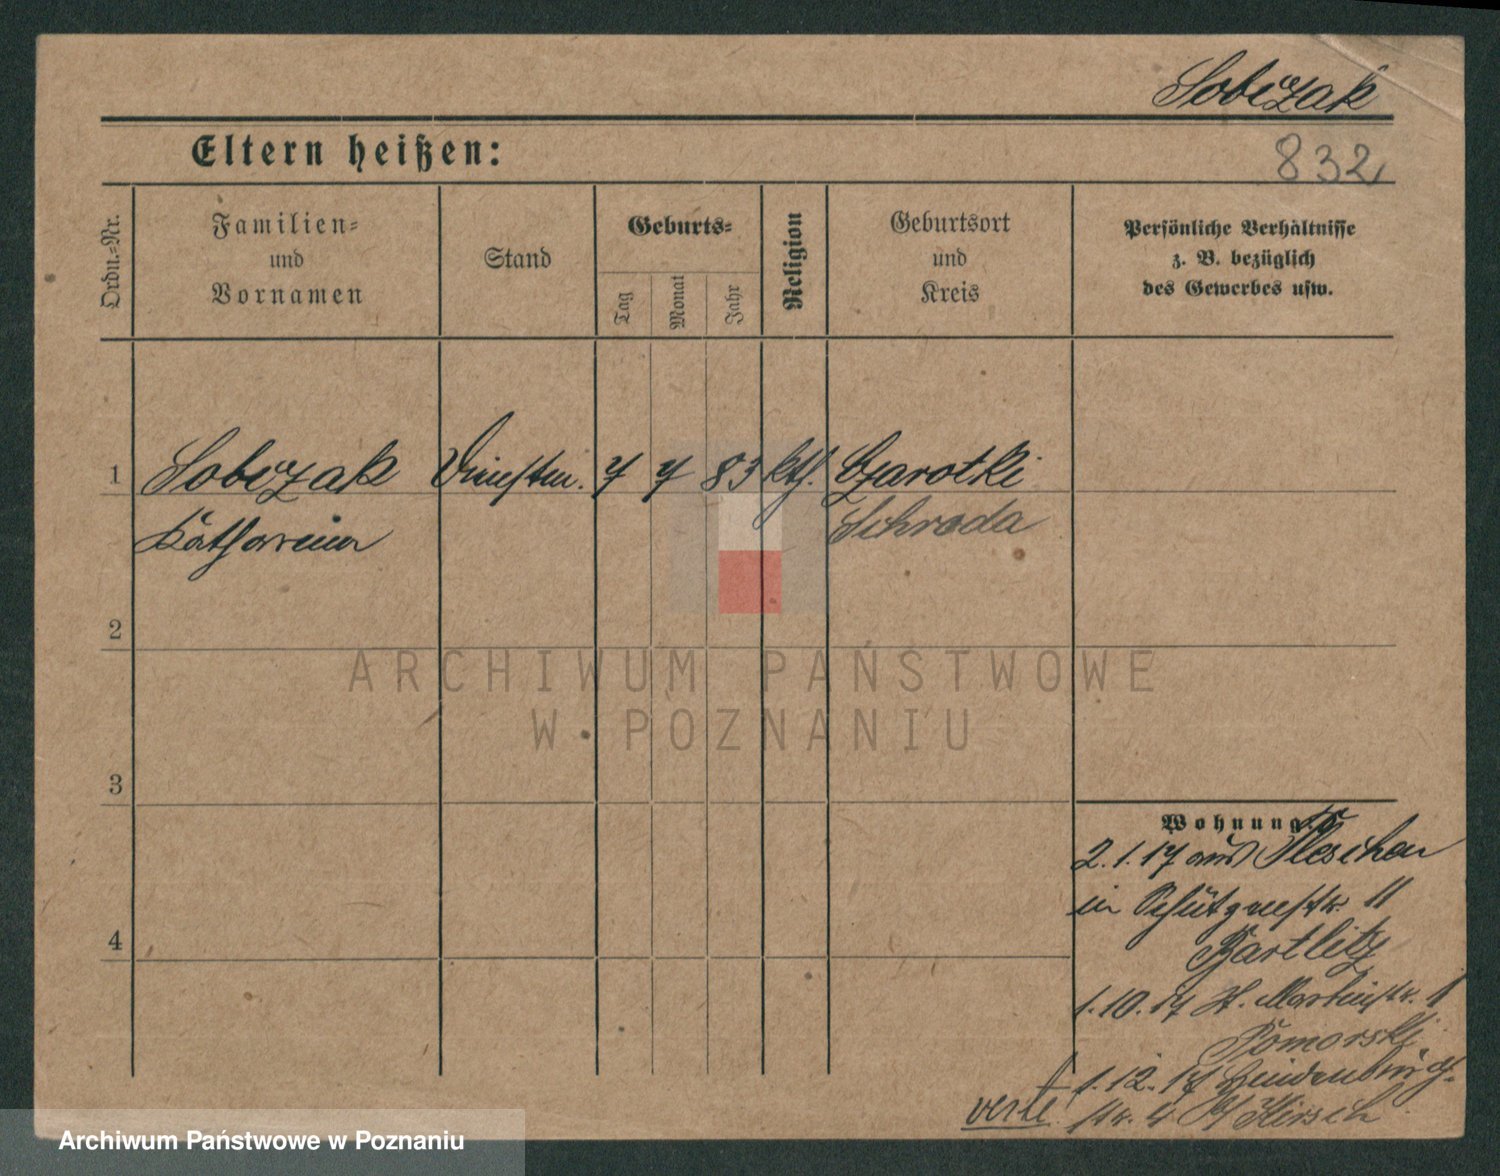 Sobczak
Eltern heißen:
832
Ordn.=Nr.
Familien=
und
Vornamen
Stand
Geburts=
Tag
Monat
Jahr
Religion
Geburtsort
und
Kreis
Persönliche Verhältnisse
z. B. bezüglich
des Gewerbes usw.
1
Sobczak
7 7 83 kth.
Czarotki
Katharina
Schroda
2
ARCHIWUM PAŃSTWOWE
W POZNANIU
3
Wohnung:
2.1.17 aus Pleschen
in Schützenstr. 11
Bartlitz
4
1.10.17 St. Martinstr.
Pomorski
1.12.17 Hindenburg-
str. 4 Hirsch
verte
Archiwum Państwowe w Poznaniu